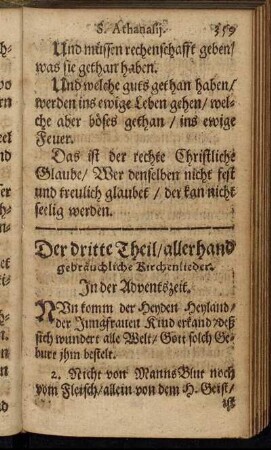 S. Athanasij. 359
Und müssen rechenschafft geben/
was sie gethan haben.
Und welche guts gethan haben/
werden ins ewige Leben gehen/ wel-
che aber böses gethan/ ins ewige
Feuer.
Das ist der rechte Christliche
Glaube/ Wer denselben nicht fest
und treulich glaubet/ der kan nicht
seelig werden.
Der dritte Theil/ allerhand
gebräuchliche Kirchenlieder.
In der Adventszeit.
NUn komm der Heyden Heyland/
der Jungfrauen Kind erkand/ deß
sich wundert alle Welt/ Gott solch Ge-
burt jhm bestelt.
2. Nicht von Manns Blut noch
vom Fleisch/ allein von dem H. Geist/
ist